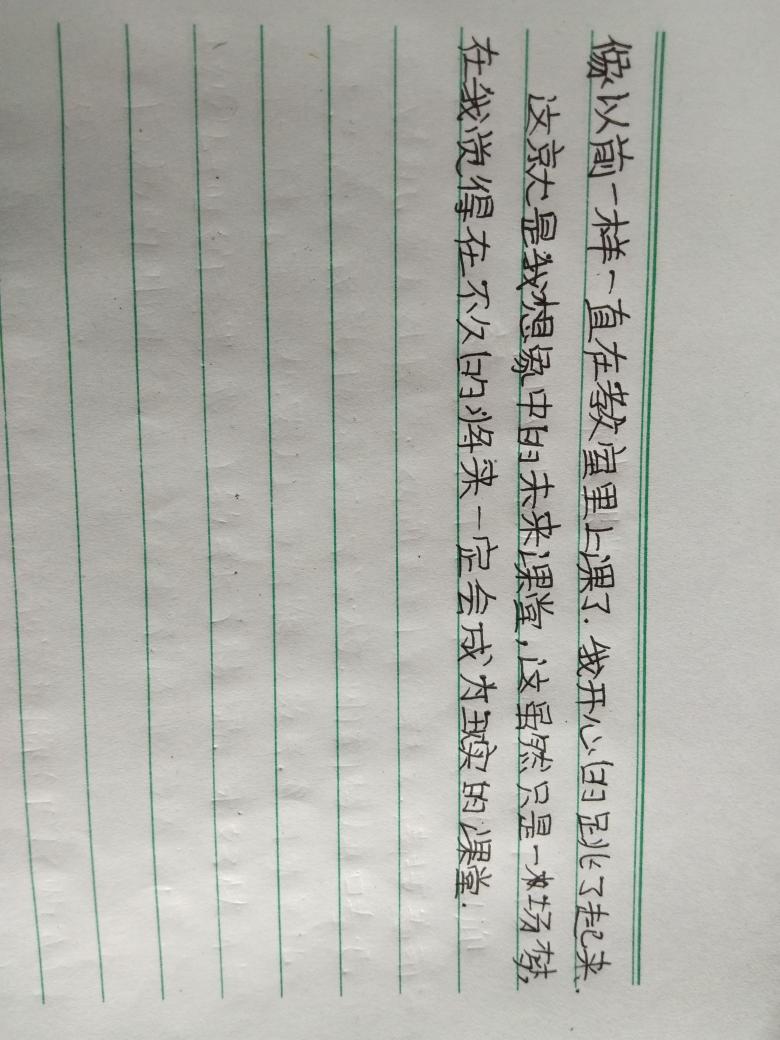 像以前一样一直在教室里上课了.我开心的跳了起来.
这就是我想象中的未来课堂,这虽然只是一场梦,
在我觉得在不久的将来一定会成为现实的课堂.